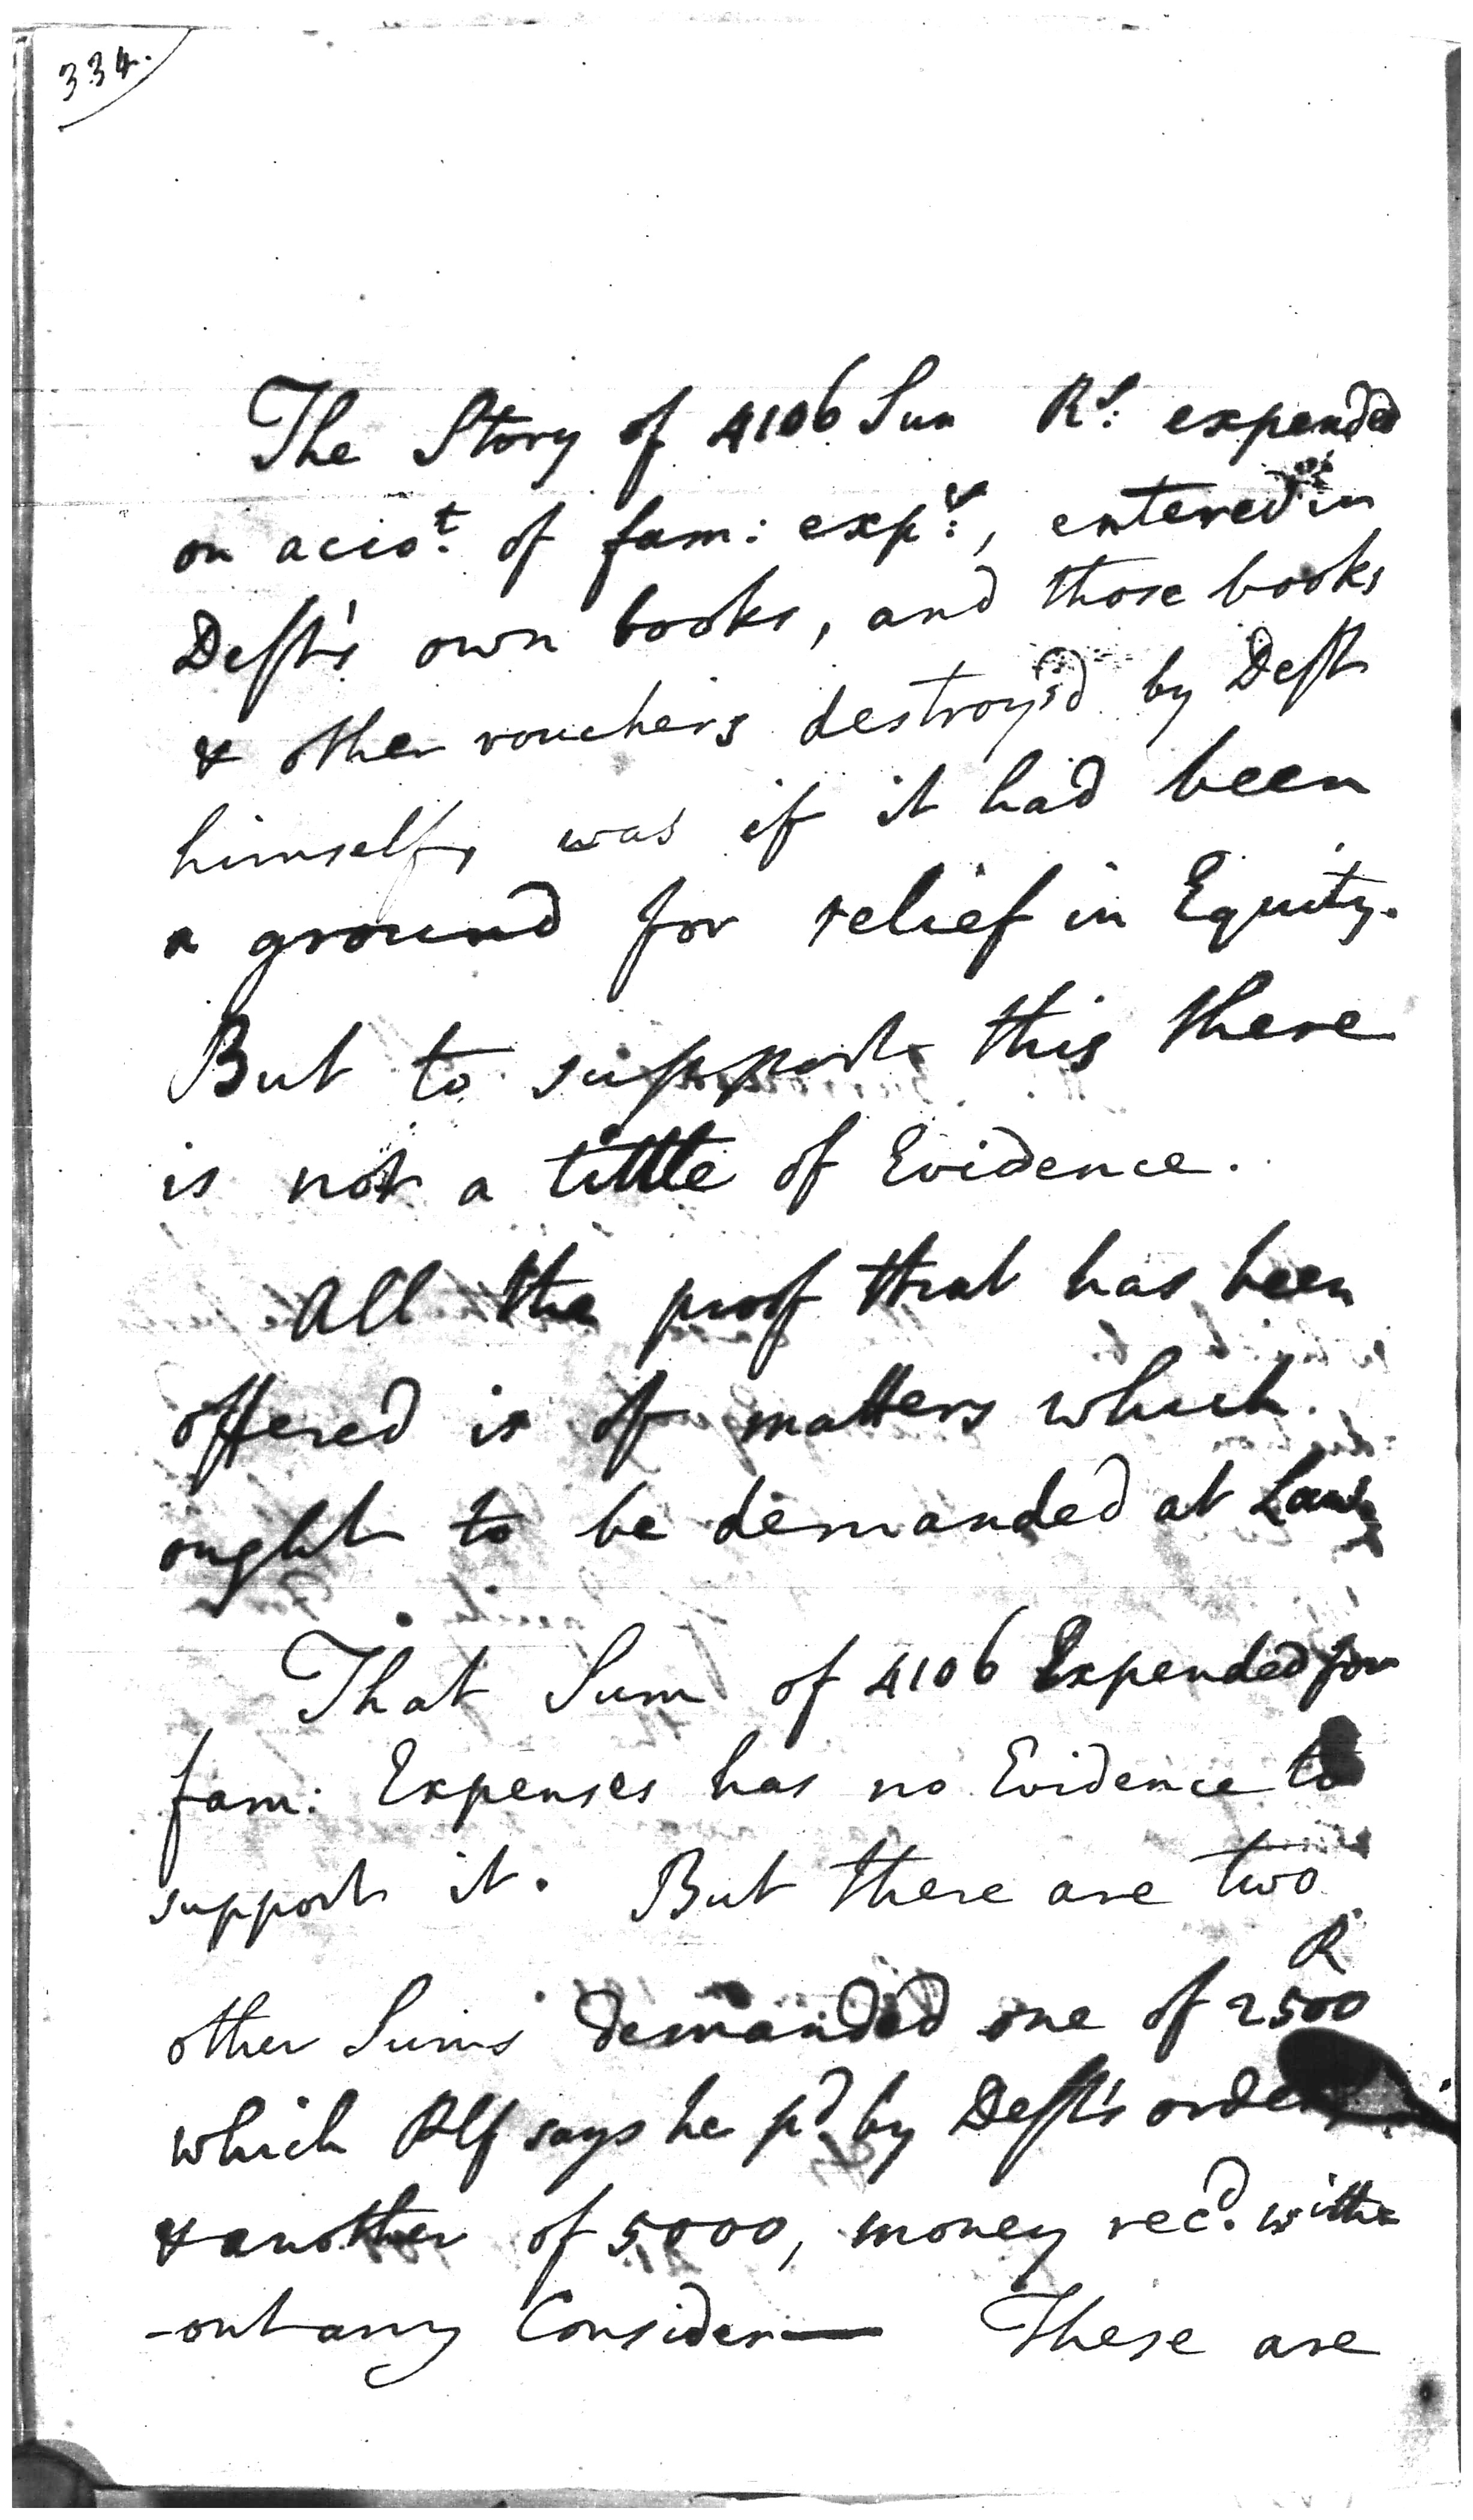 334.
The Story of 4106 Sun Rs. expended
on acco.t of fam: exps:, entered in
Deft's own books, and those books
& other vouchers destroy'd by Deft
himself, was if it had been
a ground for relief in Equity.
But to support this there
is not a tittle of Evidence.
All the proof that has been
offered is of matters which
ought to be demanded at Law
That Sum of 4106 Expended for
fam: Expenses has no Evidence to
support it. But there are two
R
other Sums demanded one of 2500
which Plf says he pd. by Deft's order
& another of 5000, money recd. with
-out any Consider— These are